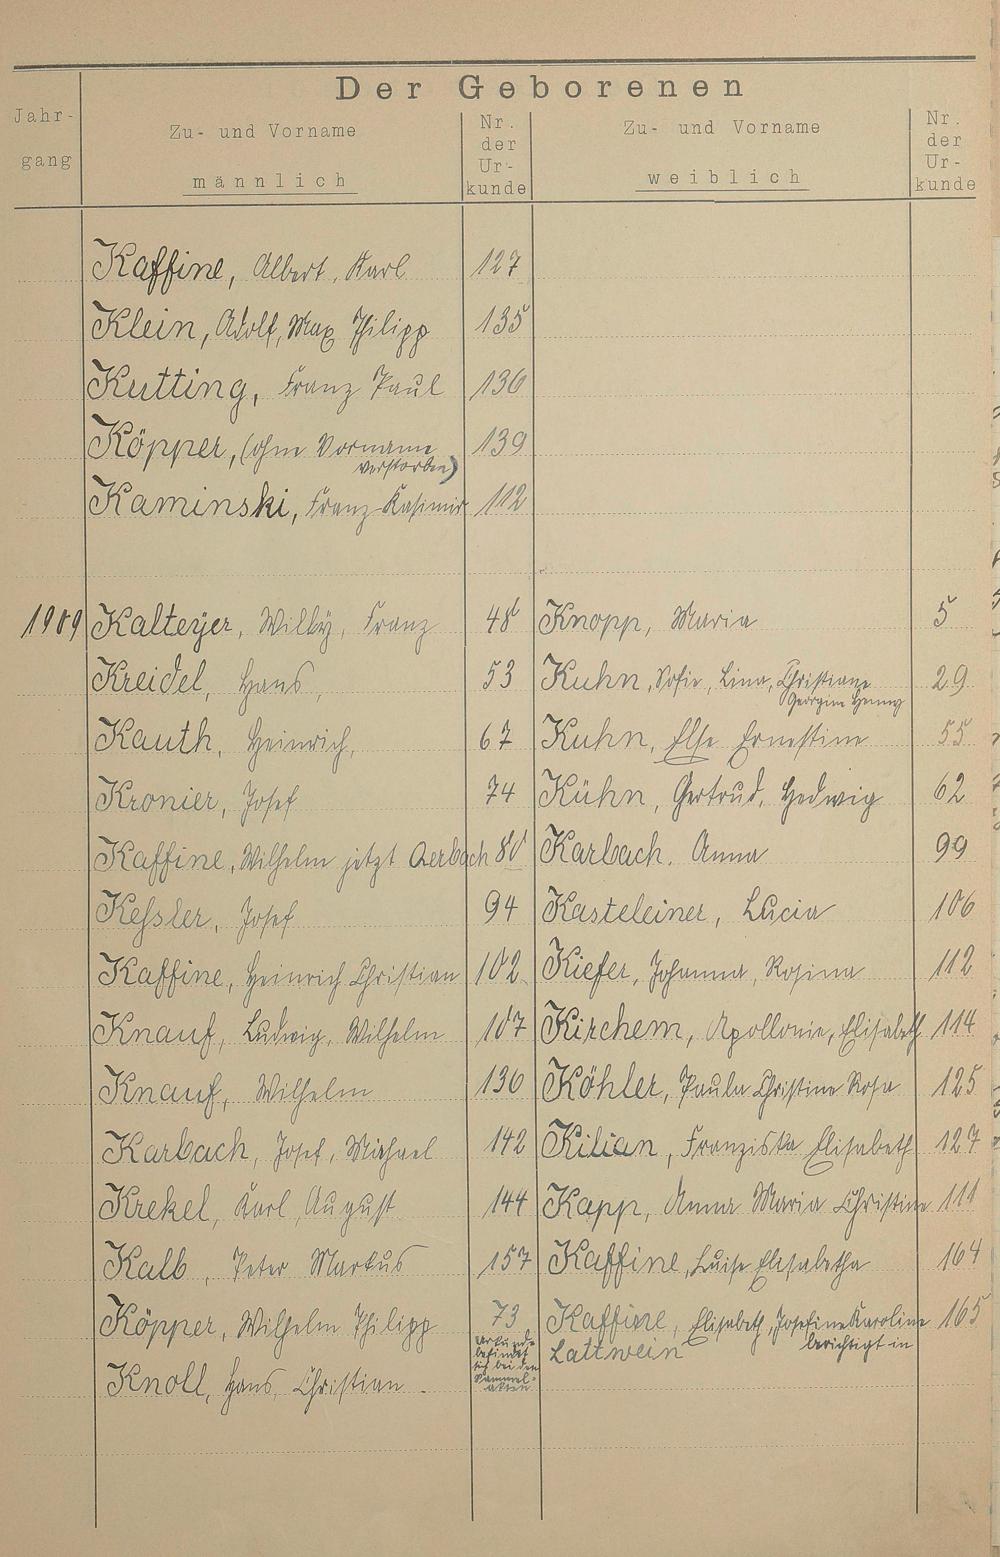 Der Geborenen
Jahr-
gang
Zu- und Vorname
männlich
Nr.
der
Ur-
kunde
Zu- und Vorname
weiblich
Nr.
der
Ur-
kunde
Kaffine, Albert, Karl 127
Klein, Adolf, Max Philipp 135
Kutting, Franz Paul 136
Köpper, (ohne Vorname 139
verstorben)
Kaminski, Franz Kasimir 112
1909 Kalteyer, Willy, Franz 48 Knopp, Maria 5
Kreidel, Hans, 53 Kuhn, Sofie, Lina, Christiane 29
Georgine Henny
Kauth, Heinrich, 67 Kuhn, Else Ernestine 55
Kronier, Josef 74 Kühn, Gertrud, Hedwig 62
Kaffine, Wilhelm jetzt Aerbach 80 Karbach, Anna 99
Keßler, Josef 94 Kasteleiner, Lucia 106
Kaffine, Heinrich Christian 102 Kiefer, Johanna, Rosina 112
Knauf, Ludwig, Wilhelm 107 Kirchem, Apollonia, Elisabeth 114
Knauf, Wilhelm 130 Köhler, Paula Christine Rosa 125
Karbach, Josef, Michael 142 Kilian, Franziska Elisabeth 127
Krekel, Karl, August 144 Kapp, Anna Maria Christine 111
Kalb, Peter Markus 157 Kaffine, Luise Elisabetha 164
Köpper, Wilhelm Philipp 73 Kaffine, Elisabeth, Josefine Karoline 165
berichtigt in
Lattwein
Knoll, Hans, Christian.
Urkunde
befindet
sich bei den
Sammel-
akten